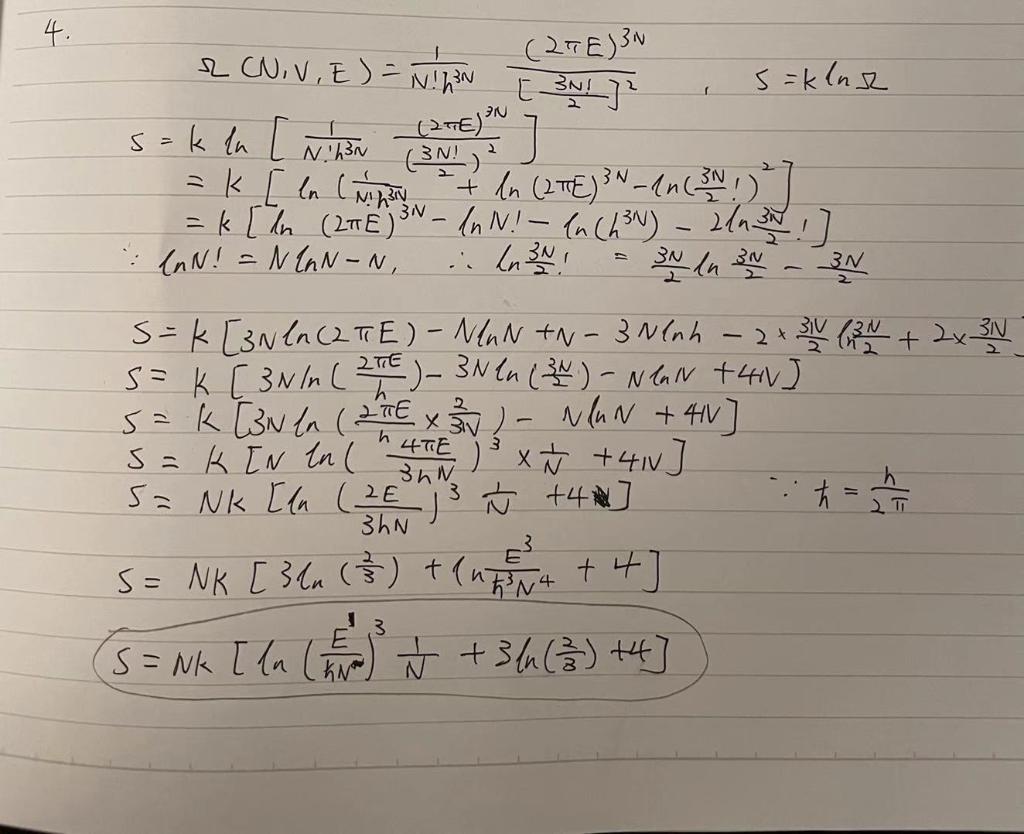 4.
Ω (N,V,E) = 1/(N!h^3N) (2πE)^3N / [3N!/2]^2 , S = k ln Ω
S = k ln [ 1/(N!h^3N) (2πE)^3N / (3N!/2)^2 ]
= k [ ln ( 1/(N!h^3N) + ln (2πE)^3N - ln(3N/2 !)^2 ]
= k [ ln (2πE)^3N - ln N! - ln(h^3N) - 2ln 3N/2 ! ]
∵ lnN! = N lnN - N, ∴ ln 3N/2 ! = 3N/2 ln 3N/2 - 3N/2
S = k [3N ln(2πE) - N lnN + N - 3N lnh - 2 × 3N/2 ln 3N/2 + 2 × 3N/2 ]
S = k [ 3N ln ( 2πE/h ) - 3N ln ( 3N/2 ) - N lnN + 4N ]
S = k [3N ln ( 2πE/h × 2/3N ) - N lnN + 4N ]
S = k [N ln( 4πE/3hN )^3 × 1/N + 4N ]
S = Nk [ln ( 2E/3hN )^3 1/N + 4 ] ∵ ħ = h/2π
S = Nk [ 3ln (2/3) + ln E^3/ħ^3N^4 + 4 ]
S = Nk [ ln ( E/ħN )^3 1/N + 3ln(2/3) + 4 ]